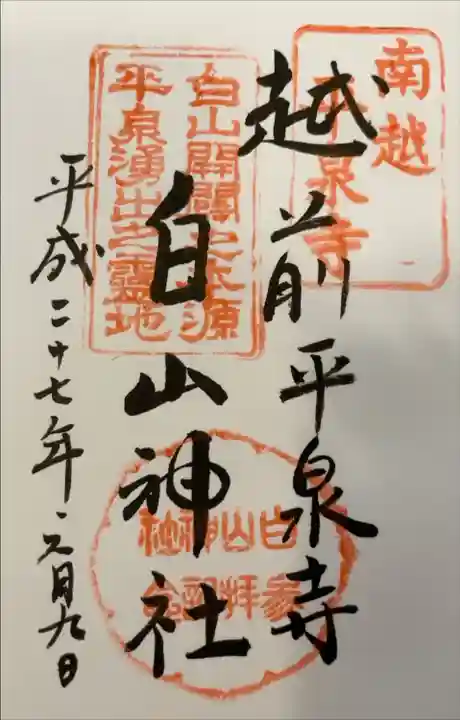 越前平泉寺
白山神社
平成二十七年六月九日
南越
平泉寺
白山開闢之本源
平泉湧出之靈地
白山神社
参拝記念